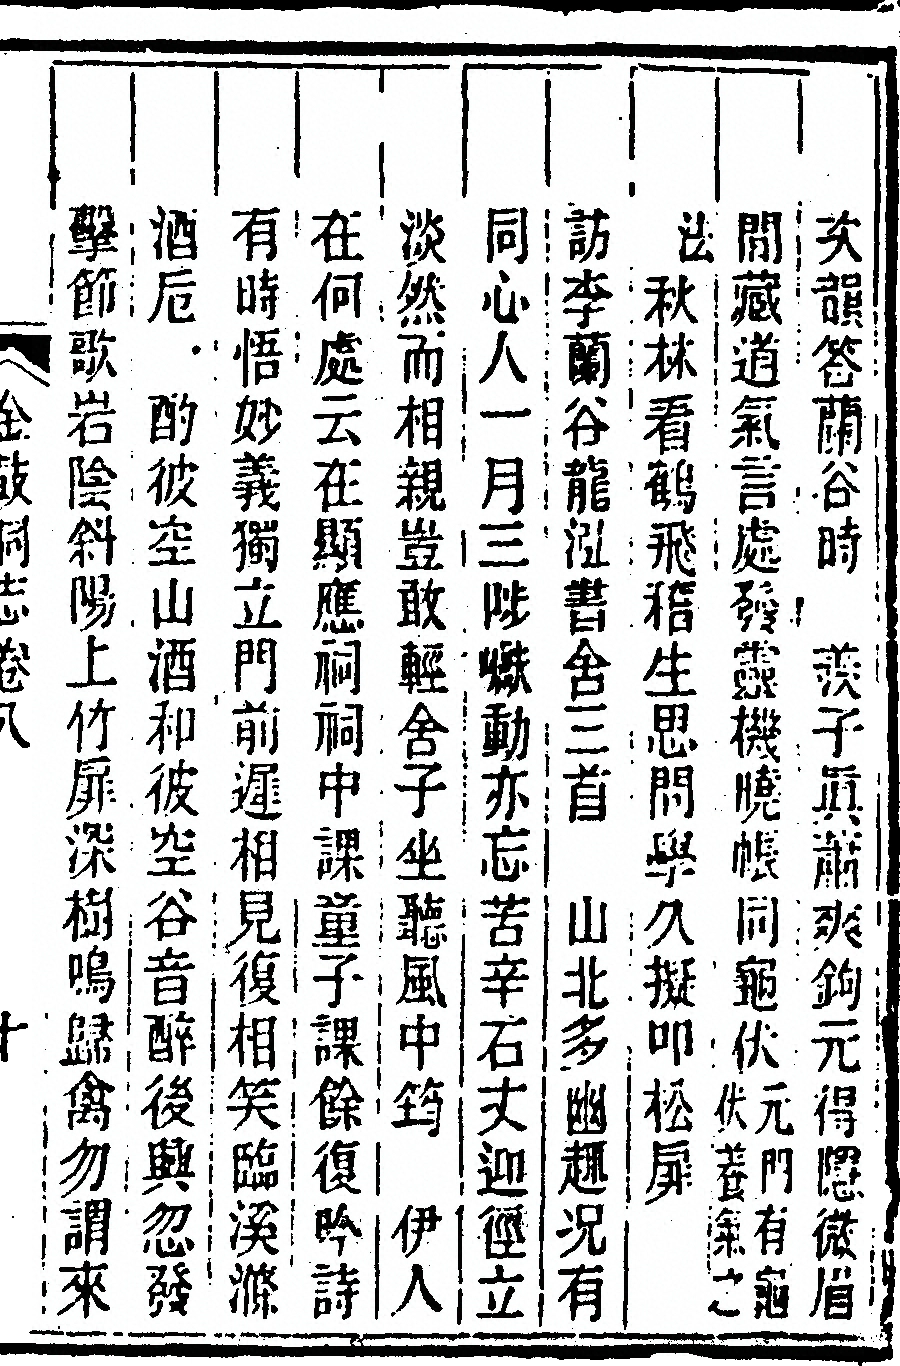 次韻答蘭谷時　羨子眞蕭爽鉤元得隱微眉
間藏道氣言處發靈機曉帳同龜伏元門有龜伏養氣之
法秋林看鶴飛稽生思問學久擬叩松扉
訪李蘭谷龍泓書舍三首　山北多幽趣況有
同心人一月三陟巘動亦忘苦辛石丈迎徑立
淡然而相親豈敢輕舍子坐聽風中筠　伊人
在何處云在顯應祠祠中課童子課餘復吟詩
有時悟妙義獨立門前遲相見復相笑臨溪滌
酒卮　酌彼空山酒和彼空谷音醉後興忽發
擊節歌岩陰斜陽上竹扉深樹鳴歸禽勿謂來
金鼓洞志卷八
十